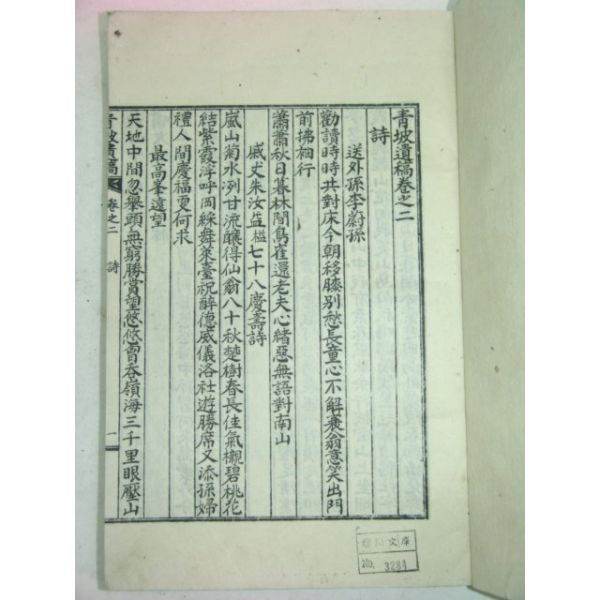 青坡遺稿卷之二
詩
送外孫李蔚孫
勸讀時時共對床今朝移膝別愁長童心不解衰翁意笑出門
前拂柳行
蕭蕭秋日暮林間鳥雀還老夫心緖惡無語對南山
戚丈朱汝益楹七十八慶壽詩
嵐山菊水洌甘流釀得仙翁八十秋楚樹春長佳氣襯碧桃花
結紫霞浮呼岡綵舞萊臺祝醉德威儀洛社遊勝席又添孫婦
禮人間慶福更何求
最高峯遠望
天地中間忽擧頭無窮勝賞望悠悠曾吞嶺海三千里眼壓山
青坡遺稿
卷之二
詩
一
文庫
No. 3284